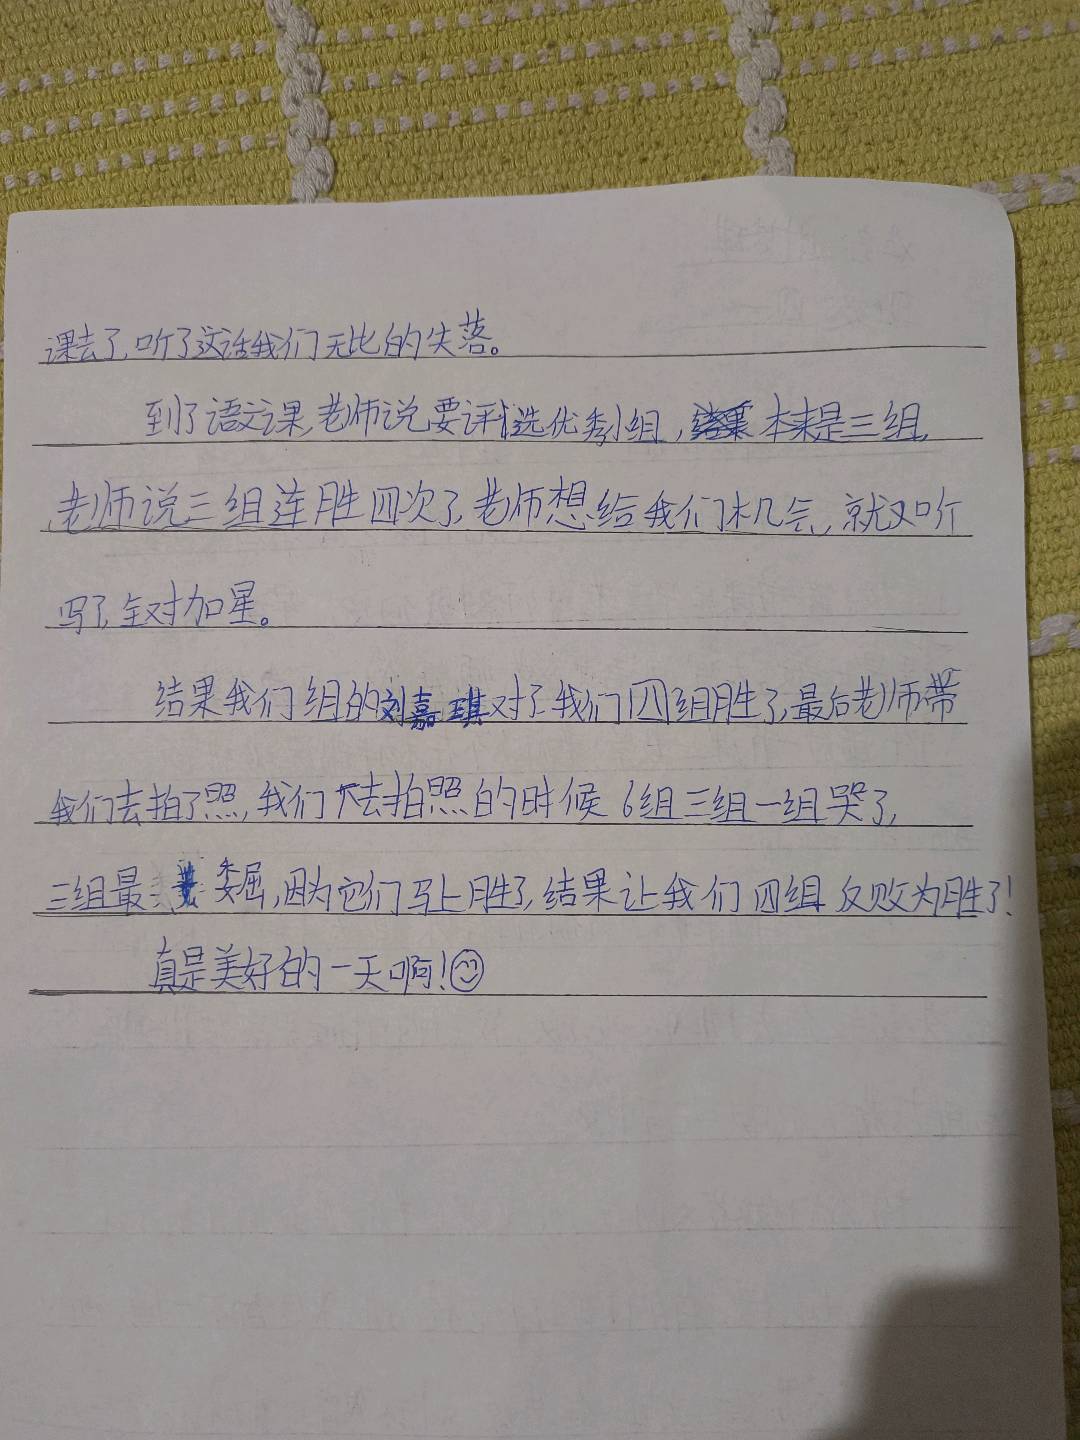 课去了,听了这话我们无比的失落。
到了语文课,老师说要评选优秀小组,本来是三组,
老师说三组连胜四次了,老师想给我们机会,就又听
写了,全对加星。
结果我们组的刘嘉琪对了,我们四组胜了,最后老师带
我们去拍了照,我们下去拍照的时候6组三组一组哭了,
三组最委屈,因为它们马上胜了,结果让我们四组反败为胜了!
真是美好的一天啊!